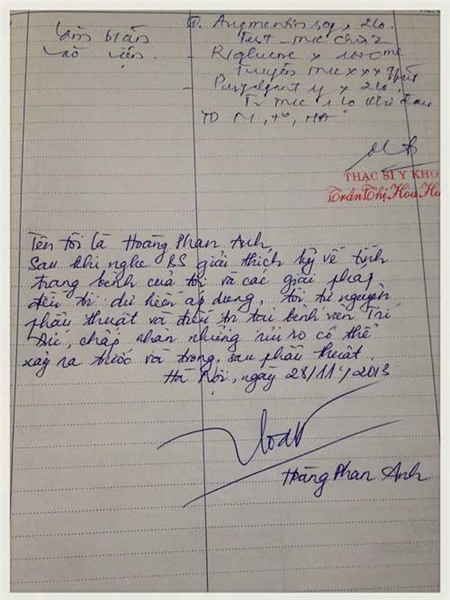 Làm bilan
vào viện.
Augmentin 1g x 2lọ.
Test - TMC chia 2
- Riglucose x 1000ml
Truyền TMC XXX g/phút
- x 2lọ.
TM 1 lọ khi đau
TD M, t°, HA
THẠC SĨ Y KHO
Trần Thị Hoa
Tên tôi là Hoàng Phan Anh,
Sau khi nghe BS giải thích kỹ về tình
trạng bệnh của tôi và các giải pháp
điều trị dự kiến áp dụng, tôi tự nguyện
phẫu thuật và điều trị tại bệnh viện Trí
Đức, chấp nhận những rủi ro có thể
xảy ra trước và trong, sau phẫu thuật.
Hà Nội, ngày 28/11/2013
Hoàng Phan Anh